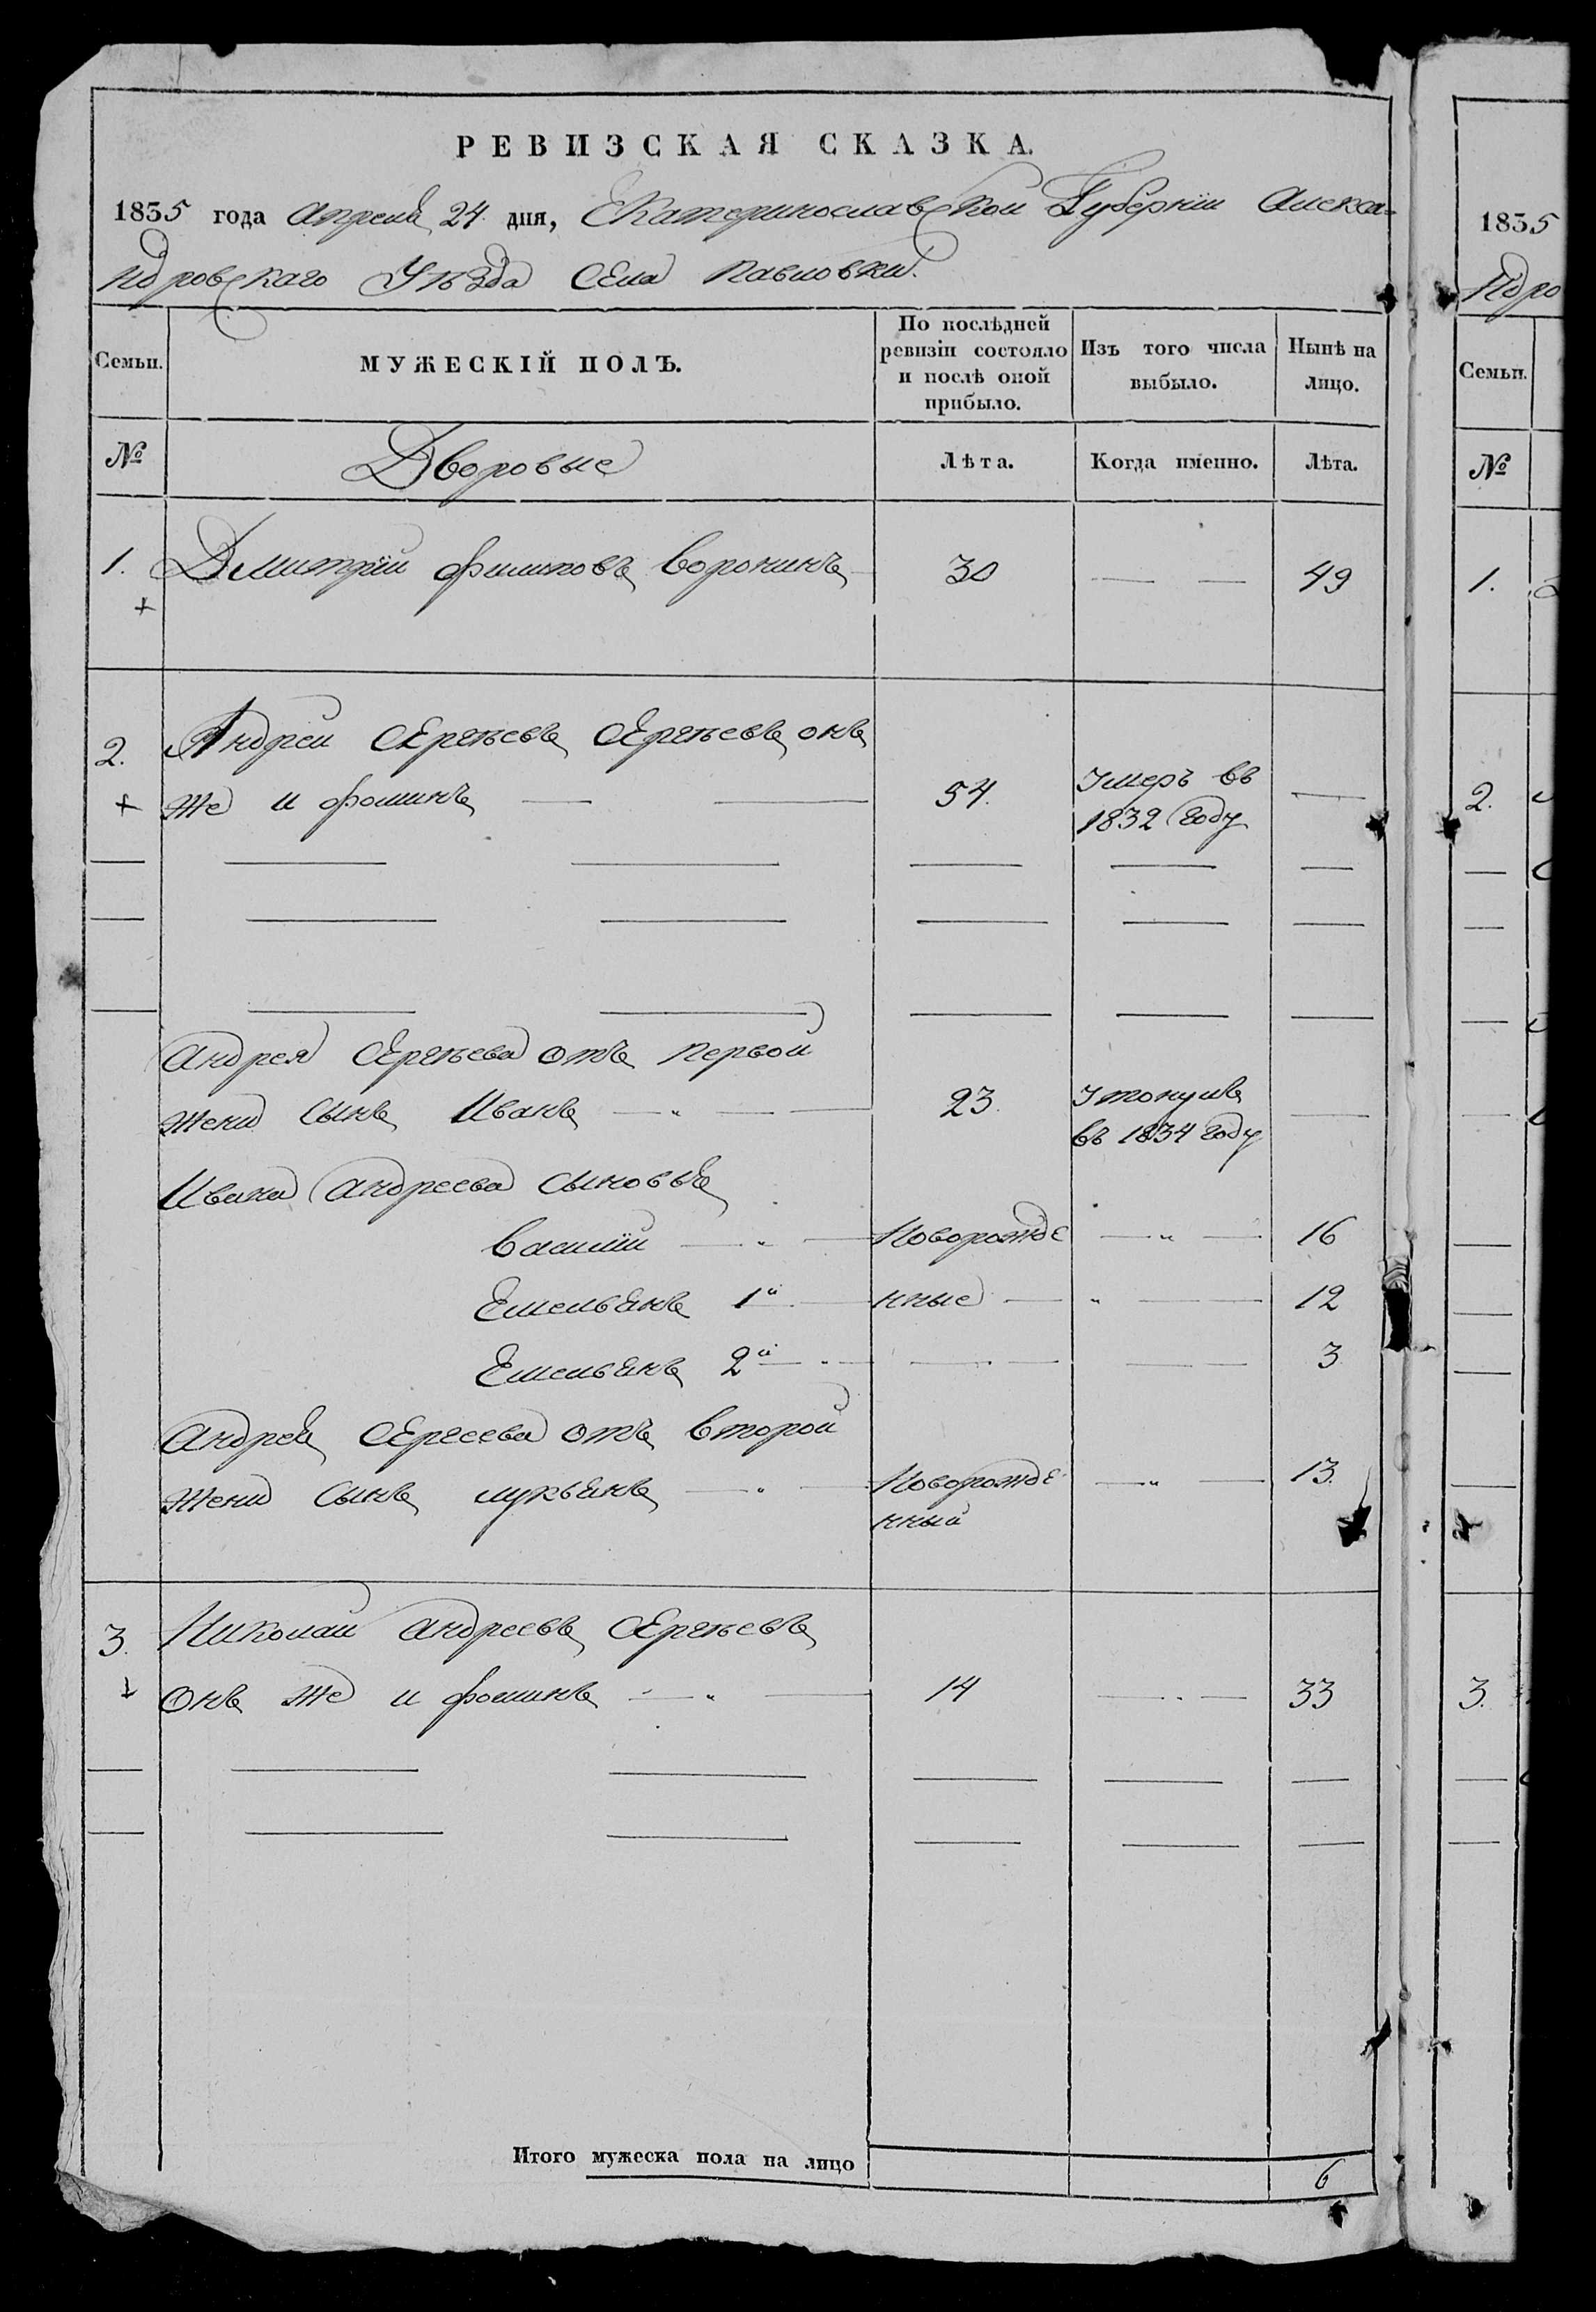 РЕВИЗСКАЯ СКАЗКА.
1835 года Апреля 24. дня, Екатеринославской Губернiи Алекса=
ндровскаго Уѣзда Села Павловки.
Семьи. МУЖЕСКІЙ ПОЛЪ. По послѣдней ревизіи состояло и послѣ оной прибыло. Изъ того числа выбыло. Нынѣ на лицо.
№ Дворовые Лѣта. Когда именно. Лѣта.
1. Дмитрiй Филиповъ Воронинъ 30 — — 49
+
2. Андрей Сергѣевъ Сергѣевъ онъ
+ же и Фоминъ — — 54. Умеръ въ —
1832 году
Андрея Сергѣева отъ первой
жены сынъ Иванъ — „ — — 23. Утонулъ —
въ 1834 году
Ивана Андреева сыновья
Василiй — „ — Новорожде — „ — 16
Емельянъ 1й — нные — „ — 12
Емельянъ 2й — „ — — — 3
Андрея Сергеева отъ второй
жены сынъ Лукьянъ — „ — Новорожде — „ — 13.
нный
3. Николай Андреевъ Сергѣевъ
+ онъ же и Фоминъ — „ — 14 — „ — 33
Итого мужеска пола на лицо 6
1835
ндро
Семьи.
№
1.
2.
3.